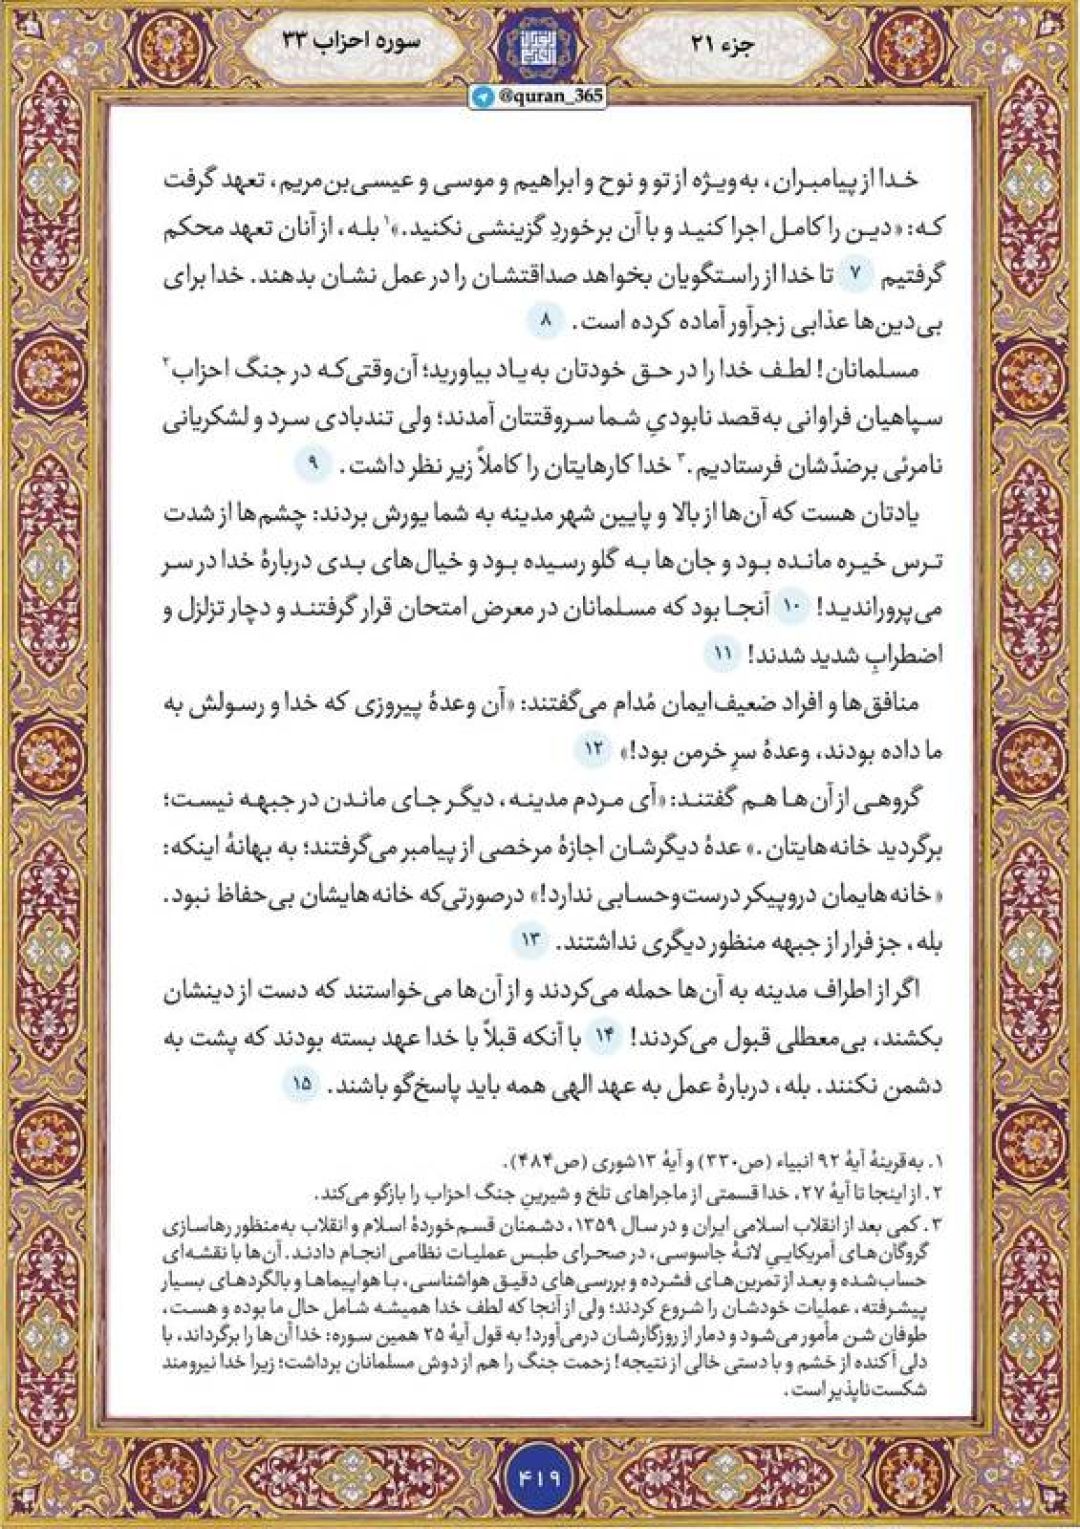 جزء ۲۱
سوره احزاب ۳۳
@quran_365
خدا از پیامبران، به‌ویژه از تو و نوح و ابراهیم و موسی و عیسی‌بن‌مریم، تعهد گرفت
که: «دین را کامل اجرا کنید و با آن برخوردِ گزینشی نکنید.»۱ بله، از آنان تعهد محکم
گرفتیم ۷ تا خدا از راستگویان بخواهد صداقتشان را در عمل نشان بدهند. خدا برای
بی‌دین‌ها عذابی زجرآور آماده کرده است. ۸
مسلمانان! لطف خدا را در حق خودتان به‌یاد بیاورید؛ آن‌وقتی‌که در جنگ احزاب۲
سپاهیان فراوانی به‌قصد نابودیِ شما سروقتتان آمدند؛ ولی تندبادی سرد و لشکریانی
نامرئی برضدّشان فرستادیم.۳ خدا کارهایتان را کاملاً زیر نظر داشت. ۹
یادتان هست که آن‌ها از بالا و پایین شهر مدینه به شما یورش بردند: چشم‌ها از شدت
ترس خیره مانده بود و جان‌ها به گلو رسیده بود و خیال‌های بدی دربارهٔ خدا در سر
می‌پروراندید! ۱۰ آنجا بود که مسلمانان در معرض امتحان قرار گرفتند و دچار تزلزل و
اضطرابِ شدید شدند! ۱۱
منافق‌ها و افراد ضعیف‌ایمان مُدام می‌گفتند: «آن وعدهٔ پیروزی که خدا و رسولش به
ما داده بودند، وعدهٔ سرِ خرمن بود!» ۱۲
گروهی از آن‌ها هم گفتند: «آی مردم مدینه، دیگر جای ماندن در جبهه نیست؛
برگردید خانه‌هایتان.» عدهٔ دیگرشان اجازهٔ مرخصی از پیامبر می‌گرفتند؛ به بهانهٔ اینکه:
«خانه‌هایمان در‌وپیکر درست‌وحسابی ندارد!» درصورتی‌که خانه‌هایشان بی‌حفاظ نبود.
بله، جز فرار از جبهه منظور دیگری نداشتند. ۱۳
اگر از اطراف مدینه به آن‌ها حمله می‌کردند و از آن‌ها می‌خواستند که دست از دینشان
بکشند، بی‌معطلی قبول می‌کردند! ۱۴ با آنکه قبلاً با خدا عهد بسته بودند که پشت به
دشمن نکنند. بله، دربارهٔ عمل به عهد الهی همه باید پاسخ‌گو باشند. ۱۵
۱. به‌قرینهٔ آیهٔ ۹۲ انبیاء (ص۳۳۰) و آیهٔ ۱۳شوری (ص۴۸۴).
۲. از اینجا تا آیهٔ ۲۷، خدا قسمتی از ماجراهای تلخ و شیرینِ جنگ احزاب را بازگو می‌کند.
۳. کمی بعد از انقلاب اسلامی ایران و در سال ۱۳۵۹، دشمنان قسم‌خوردهٔ اسلام و انقلاب به‌منظور رهاسازی
گروگان‌های آمریکاییِ لانهٔ جاسوسی، در صحرای طبس عملیات نظامی انجام دادند. آن‌ها با نقشه‌ای
حساب‌شده و بعد از تمرین‌های فشرده و بررسی‌های دقیق هواشناسی، با هواپیماها و بالگردهای بسیار
پیشرفته، عملیات خودشان را شروع کردند؛ ولی از آنجا که لطف خدا همیشه شامل حال ما بوده و هست،
طوفان شن مأمور می‌شود و دمار از روزگارشان درمی‌آورد! به قول آیهٔ ۲۵ همین سوره: خدا آن‌ها را برگرداند، با
دلی آکنده از خشم و با دستی خالی از نتیجه! زحمت جنگ را هم از دوش مسلمانان برداشت؛ زیرا خدا نیرومند
شکست‌ناپذیر است.
۴۱۹